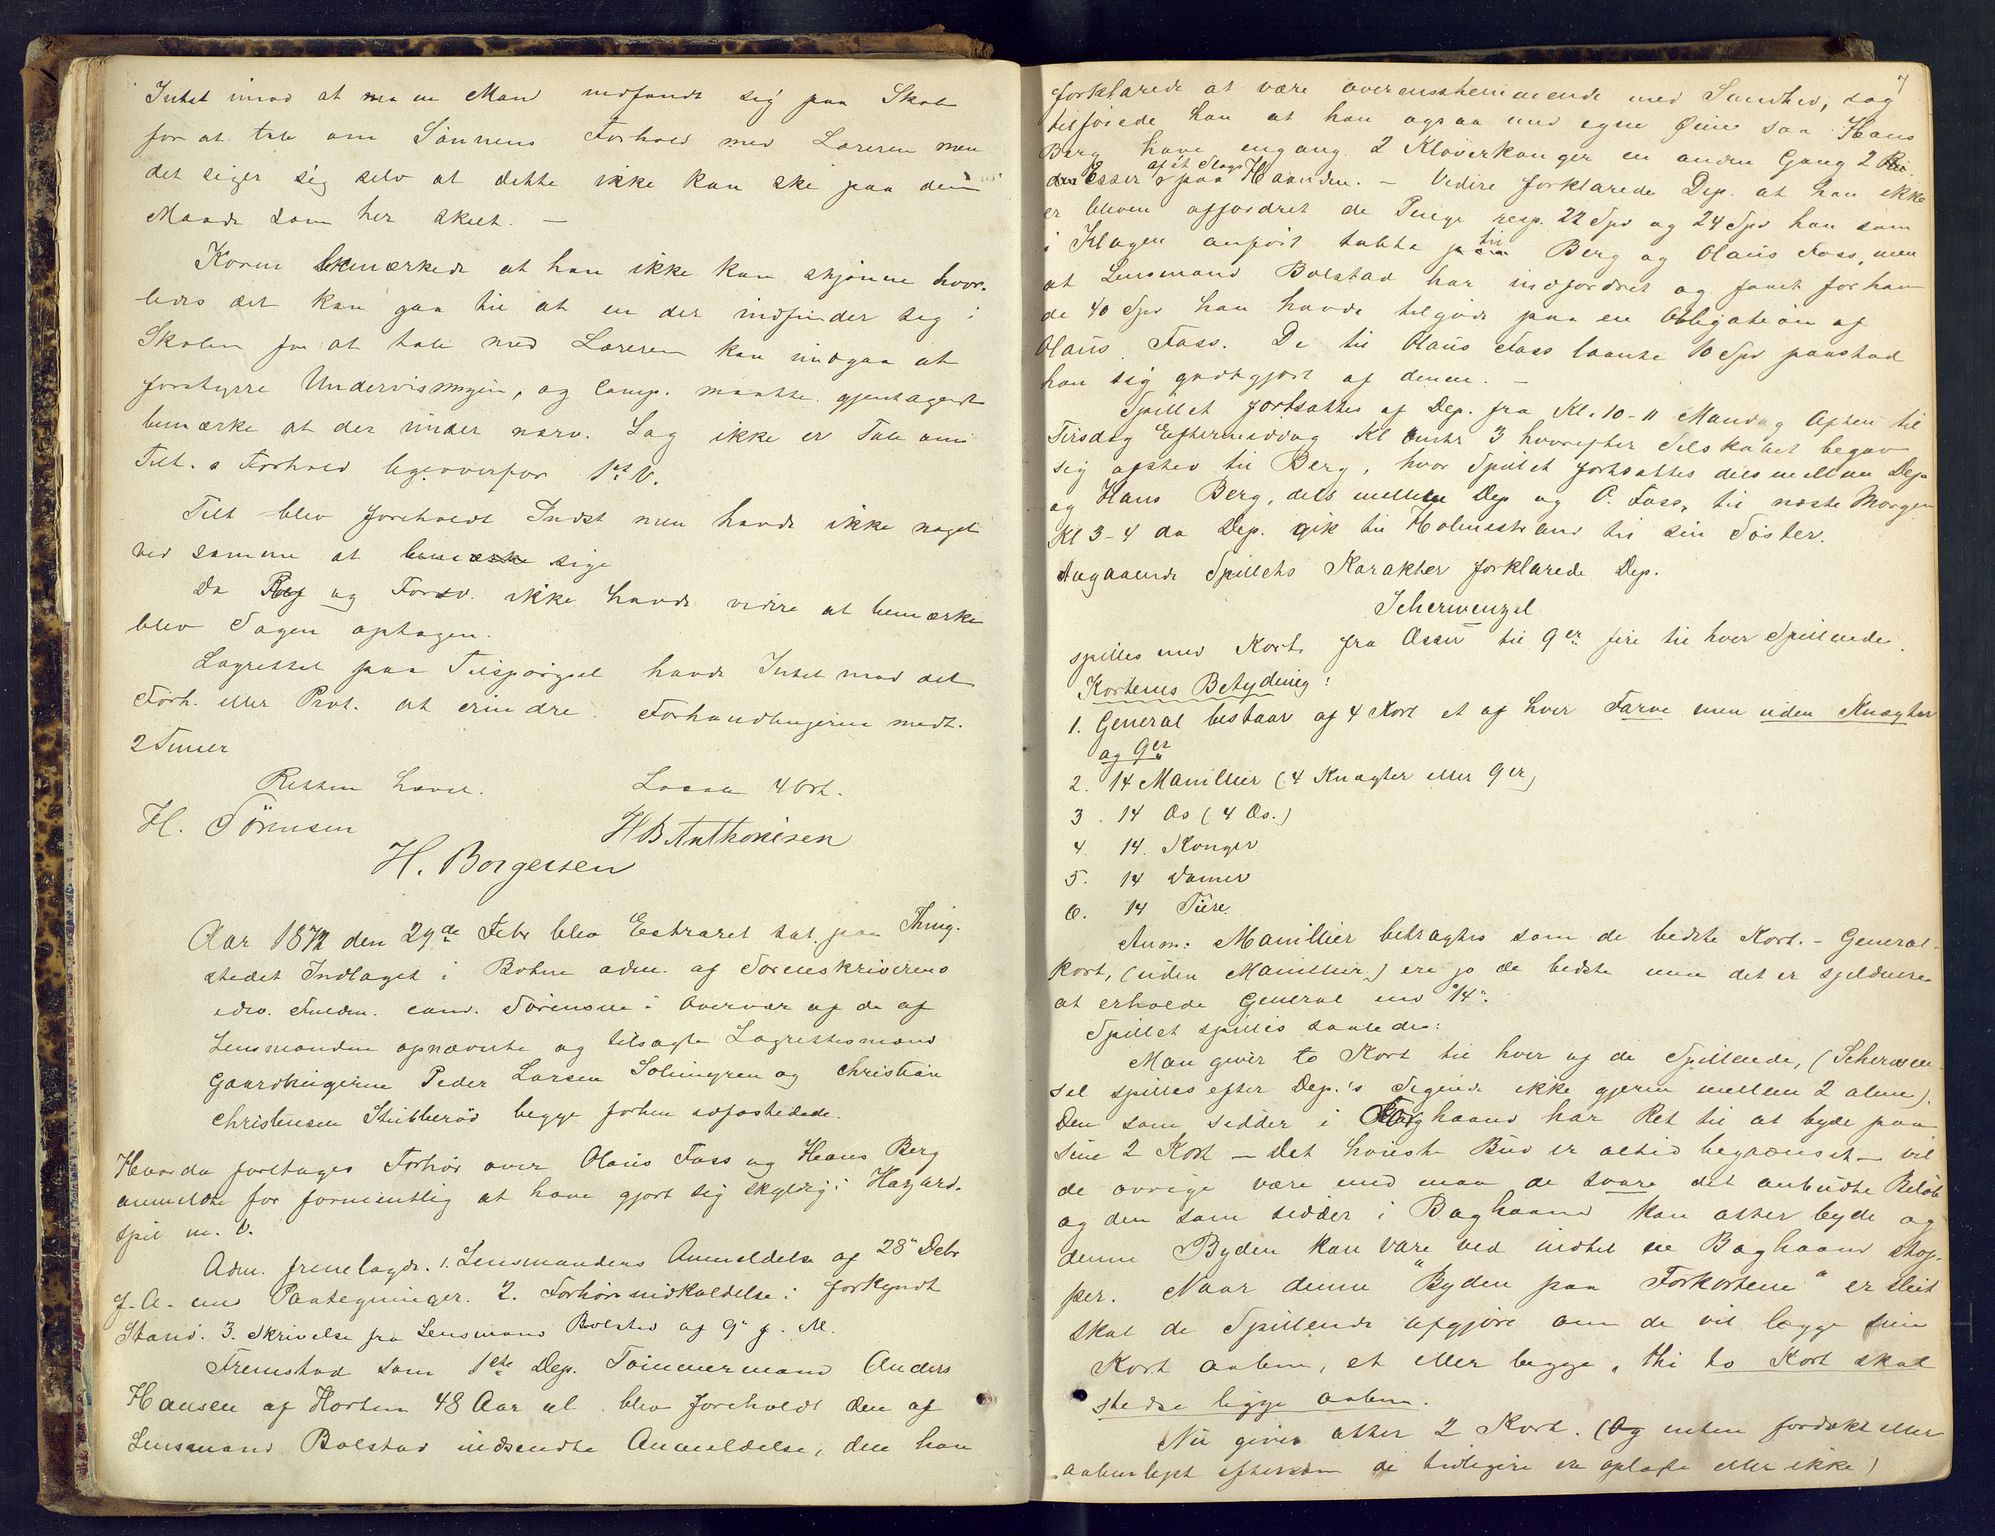 Intet imod at man en Mand indfandt sig paa Skolen
for at tale om Sønnens Forhold med Læreren men
det siger sig selv at dette ikke kan ske paa den
Maade som her skeet. —
Korm bemærkede at han ikke kan skjønne hvor-
ledes det kan gaa til at en der indfinder sig i
Skolen for at tale med Læreren kan undgaa at
forstyrre Undervisningen, og Comp. maatte gjentagende
bemærke at der under nærv. Sag ikke er Tale om
Tilt.s Forhold ligeoverfor 1st V.
Tilt blev foreholdt Indst men havde ikke noget
ved samme at bemærke sige
Da og Forsv. ikke havde videre at bemærke
blev Sagen optagen.
Lagrettet paa Tilspørgsel havde Intet mod det
Forh. eller Prot. at erindre. Forhandlingerne medt.
2 Timer
Retten hævet. Læsen 4 Ort.
H. Sörensen H B Anthonisen
H. Borgersen
Aar 1872 den 29de Febr blev Extraret sat paa Thing-
stedet Indlaget i Botne adm. af Sorenskriverens
edsv. Fuldm. cand. Sörensen i Overvær af de af
Lensmanden opnævnte og tilsagte Lagrettesmænd
Gaardbrugerne Peder Larsen Solmyren og Christian
Christensen Stubberød begge forhen edfæstede.
Hvorda foretages Forhør over Olaus Foss og Hans Berg
anmeldte for formentlig at have gjort sig skyldig i Hazard-
spil m. V.
Adm. fremlagde. 1. Lensmandens Anmeldelse af 28" Debr
f. A. med Paategninger. 2. Forhørsindkaldelse i forkyndt
Stand. 3. Skrivelse fra Lensmand Bolstad af 9" d. M.
Fremstod som 1ste Dep. Tømmermand Anders
Hansen af Horten 48 Aar al. blev foreholdt den af
Lensmand Bolstad indsendte Anmeldelse, den han
7
forklarede at være overensstemmende med Sandhed, dog
tilføiede han at han ogsaa med egne Øine saa Hans
Berg have engang 2 Kløverkonger en anden Gang 2
Esser af et Slags paa Haanden. — Videre forklarede Dep. at han ikke
er bleven affordret de Penge resp. 22 Spd og 24 Spd han som
i Klagen anført tabte til Berg og Olaus Foss, men
at Lensmand Bolstad har indfordret og faaet for ham
de 40 Spd han havde tilgode paa en Obligation af
Olaus Foss. De til Olaus Foss laante 10 Spd paastod
han sig godtgjort af denne. —
Spillet fortsattes af Dep. fra Kl. 10-11 Mandag Aften til
Tirsdag Eftermiddag Kl omtr 3 hvorefter Selskabet begav
sig afsted til Berg, hvor Spillet fortsattes dels mellem Dep
og Hans Berg, dels mellem Dep og O. Foss, til næste Morgen
Kl 3-4 da Dep. gik til Holmestrand til sin Søster.
Angaaende Spillets Karakter forklarede Dep.
Scherwenzel
spilles med Kort fra Esser til 9er fire til hver Spillende.
Kortenes Betydning:
1. General bestaar af 4 Kort et af hver Farve men uden Knægter
og 9er
2. 14 Manillier (4 Knægter eller 9er)
3. 14 Es (4 Es.)
4. 14. Konger
5. 14 Damer
6. 14 Tiere.
Anm: Manillier betragtes som de bedste Kort. — General-
kort, (uden Manillier) ere jo de bedste men det er sjeldnere
at erholde General end "14".
Spillet spilles saaledes:
Man giver to Kort til hver af de Spillende, (Scherwen-
sel spilles efter Dep.'s Sigende ikke gjerne mellem 2 alene).
Den som sidder i Forhaand har Ret til at byde paa
sine 2 Kort — Det høieste Bud er altid begrænset — vil
de øvrige være med maa de svare det anbudte Beløb
og den som sidder i Baghaand kan atter byde og
denne Byden kan vare ved indtil en Baghaand stop-
per. Naar denne "Byden paa Forkortene" er sluit
skal de Spillende afgjøre om de vil lægge sine
Kort aabne, et eller begge, thi to Kort skal
stedse ligge aabne.
Nu gives atter 2 Kort. (Og enten fordækt eller
aabenlyst eftersom de tidligere er oplagte eller ikke)